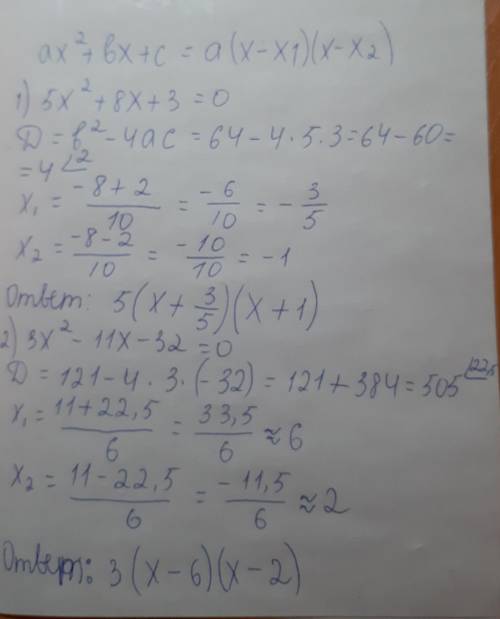 ax² + bx + c = a(x - x1)(x - x2)
1) 5x² + 8x + 3 = 0
D = b² - 4ac = 64 - 4 · 5 · 3 = 64 - 60 =
= 4 ∠2
x₁ = (-8 + 2)/10 = -6/10 = -3/5
x₂ = (-8 - 2)/10 = -10/10 = -1
Ответ: 5(x + 3/5)(x + 1)
2) 3x² - 11x - 32 = 0
D = 121 - 4 · 3 · (-32) = 121 + 384 = 505 ∠22,5
x₁ = (11 + 22,5)/6 = 33,5/6 ≈ 6
x₂ = (11 - 22,5)/6 = -11,5/6 ≈ 2
Ответ: 3(x - 6)(x - 2)